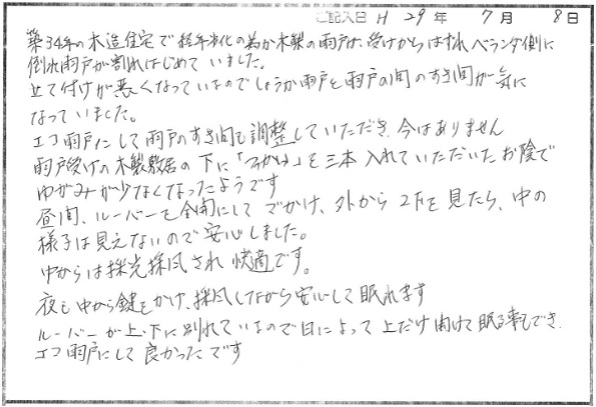 ご記入日 H 29年 7月 8日
築34年の木造住宅で経年劣化の為か木製の雨戸は、受けからはずれベランダ側に
倒れ雨戸が割れはじめていました。
立て付けが悪くなっているのでしょうか雨戸と雨戸の間のすき間が気に
なっていました。
エコ雨戸にして雨戸のすき間も調整していただき、今はありません
雨戸受けの木製敷居の下に「つかい」を三本入れていただいたお陰で
ゆがみが少なくなったようです
昼間、ルーバーを全開にしてでかけ、外から2Fを見たら、中の
様子は見えないので安心しました。
中からは採光採風され快適です。
夜も中から鍵をかけ、採風しながら安心して眠れます
ルーバーが上・下に別れているので日によって上だけ開けて眠る事もでき、
エコ雨戸にして良かったです